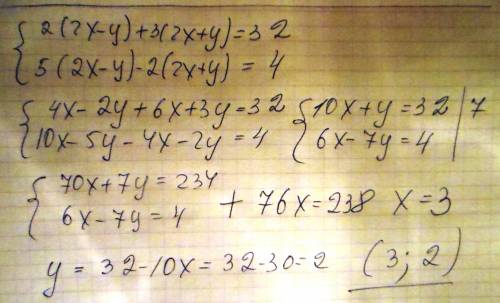 2(2x-y)+3(2x+y)=32
5(2x-y)-2(2x+y)=4
4x-2y+6x+3y=32 10x+y=32 | 7
10x-5y-4x-2y=4 6x-7y=4
70x+7y=234
6x-7y=4 + 76x=238 x=3
y=32-10x=32-30=2 (3; 2)